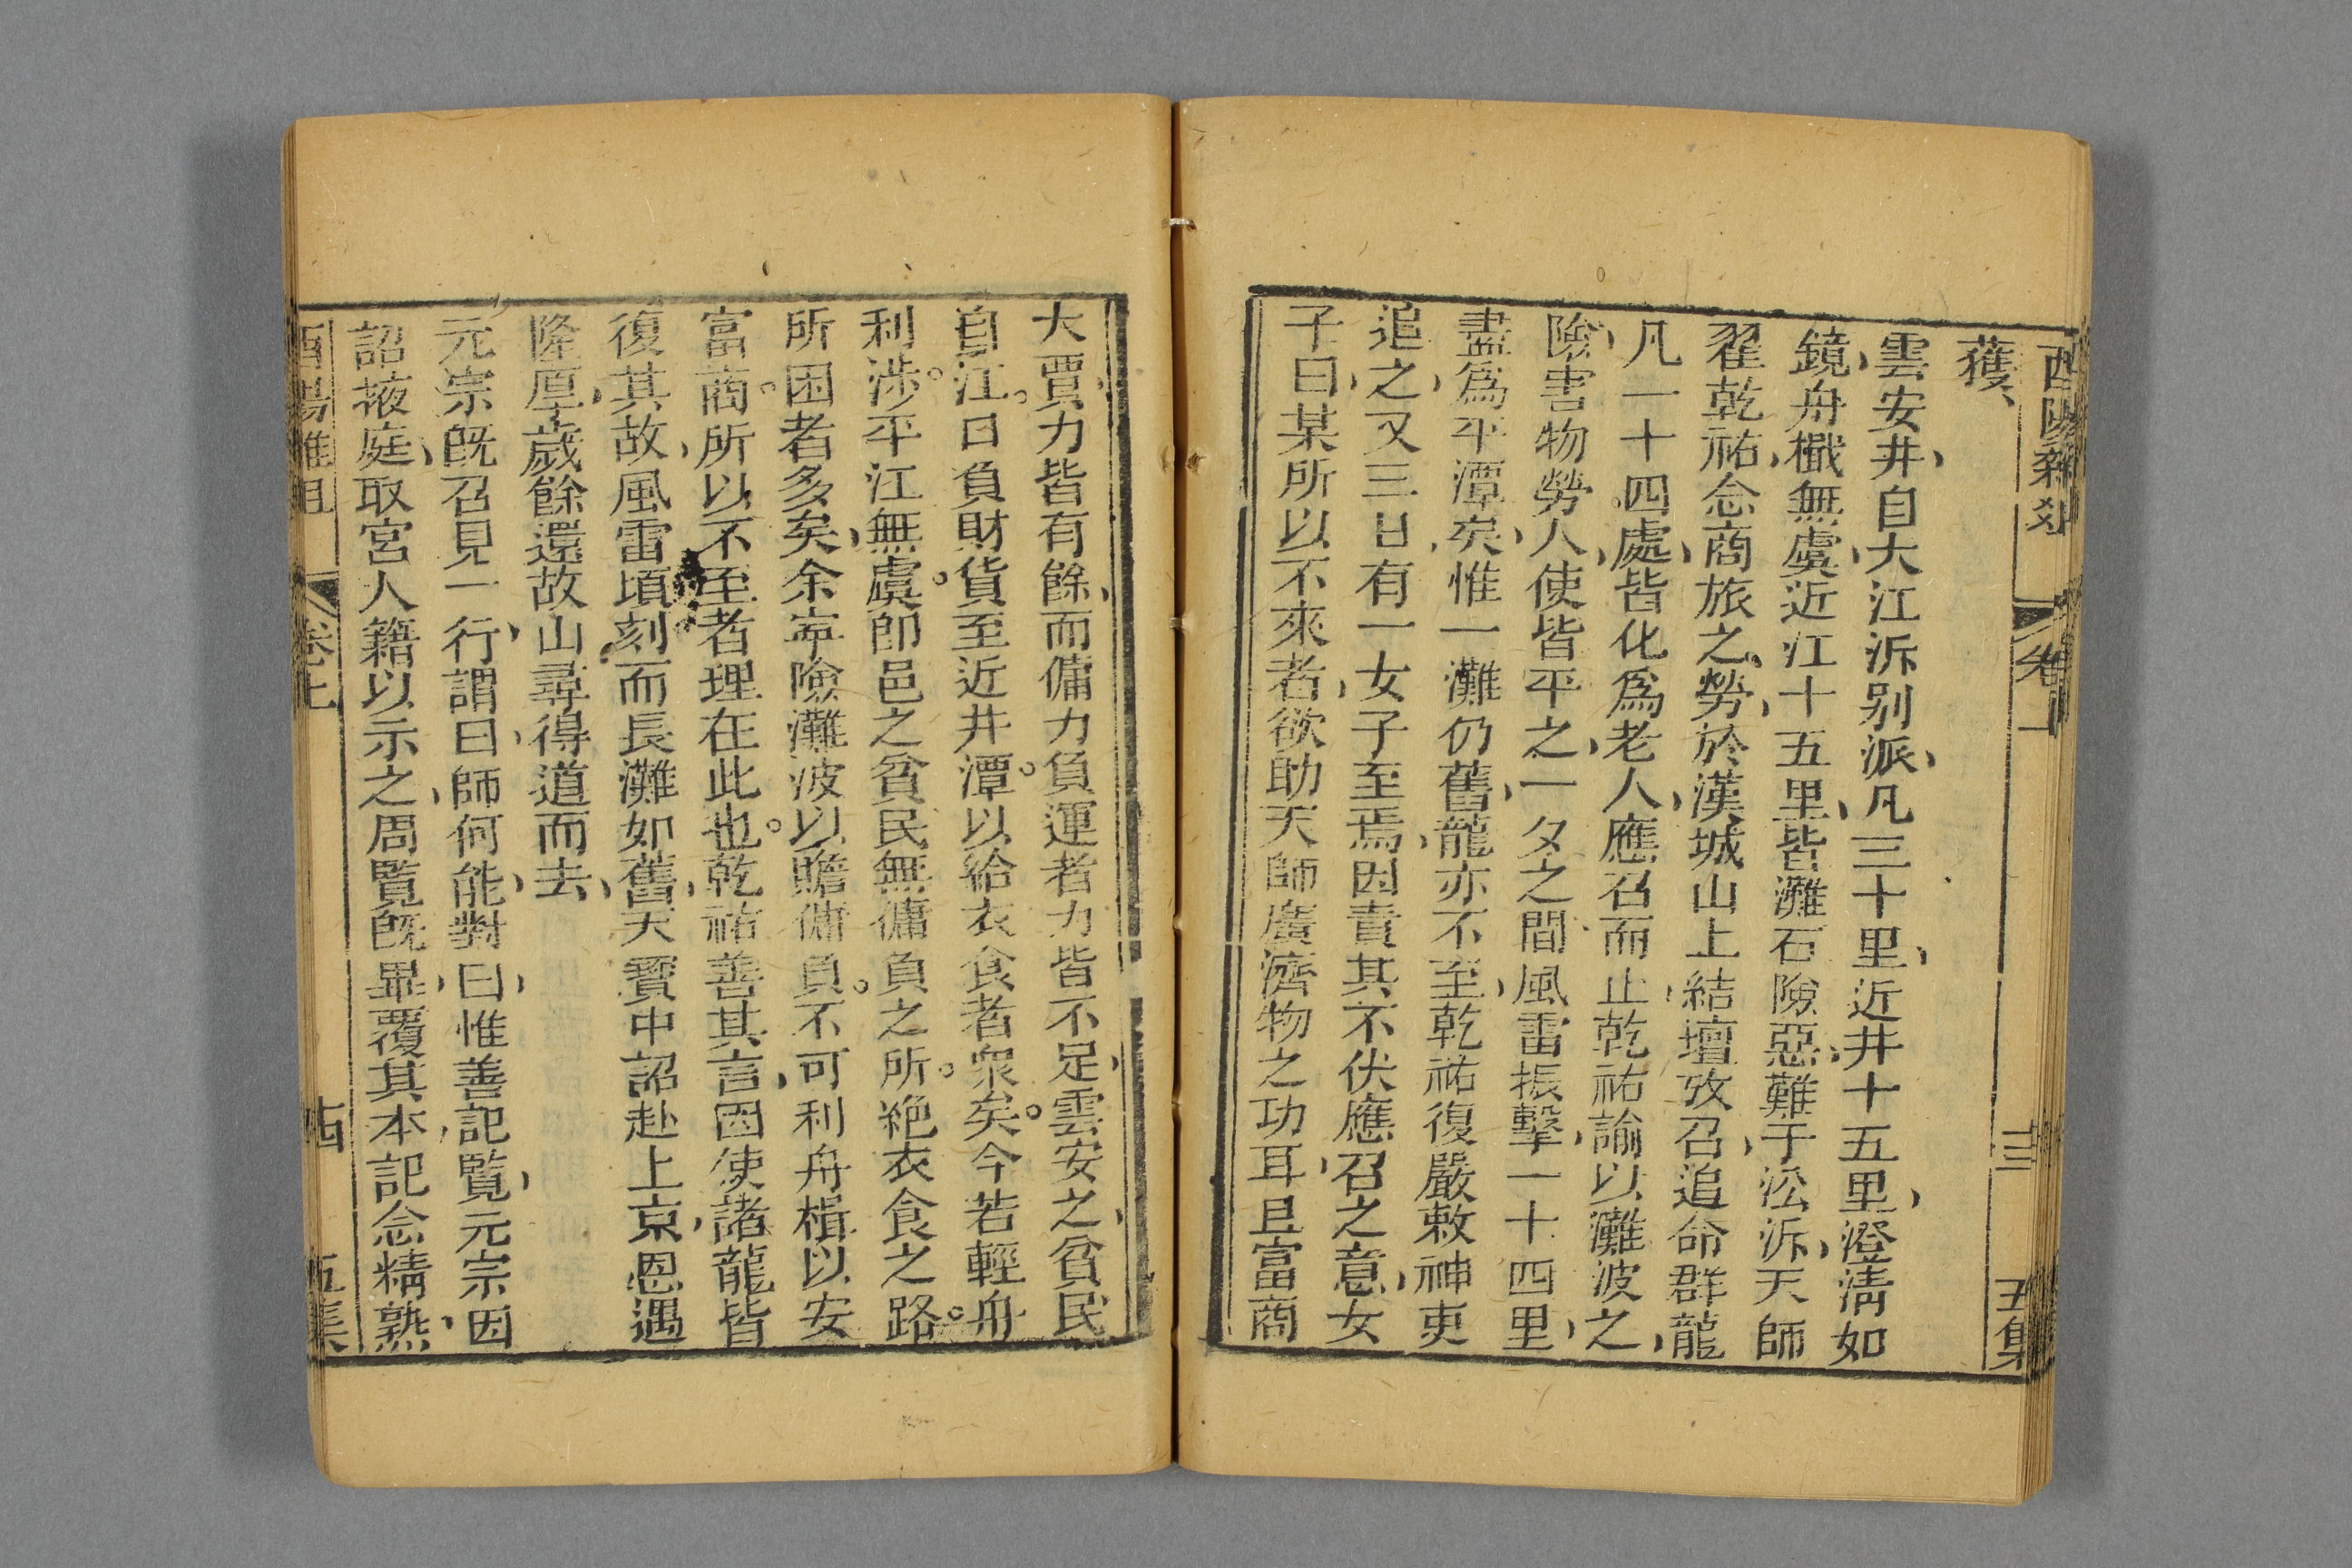 酉陽雜俎 卷上 十三 五集
獲
雲安井自大江泝别派凡三十里近井十五里澄淸如
鏡舟檝無虞近江十五里皆灘石險惡難于㳂泝天師
翟乾祐念商旅之勞於漢城山上結壇攷召追命群龍
凡一十四處皆化爲老人應召而止乾祐諭以灘波之
險害物勞人使皆平之一夕之間風雷振擊一十四里
盡爲平潭矣惟一灘仍舊龍亦不至乾祐復嚴敕神吏
追之又三日有一女子至焉因責其不伏應召之意女
子曰某所以不來者欲助天師廣濟物之功耳且富商
大賈力皆有餘而傭力負運者力皆不足雲安之貧民
自江口負財貨至近井潭以給衣食者衆矣今若輕舟
利涉平江無虞卽邑之貧民無傭負之所絶衣食之路
所困者多矣余寧險灘波以贍傭負不可利舟楫以安
富商所以不至者理在此也乾祐善其言因使諸龍皆
復其故風雷頃刻而長灘如舊天寶中詔赴上京恩遇
隆厚歲餘還故山尋得道而去
元宗旣召見一行謂曰師何能對曰惟善記覽元宗因
詔掖庭取宮人籍以示之周覽旣畢覆其本記念精熟
酉陽雜俎 卷上 十四 五集